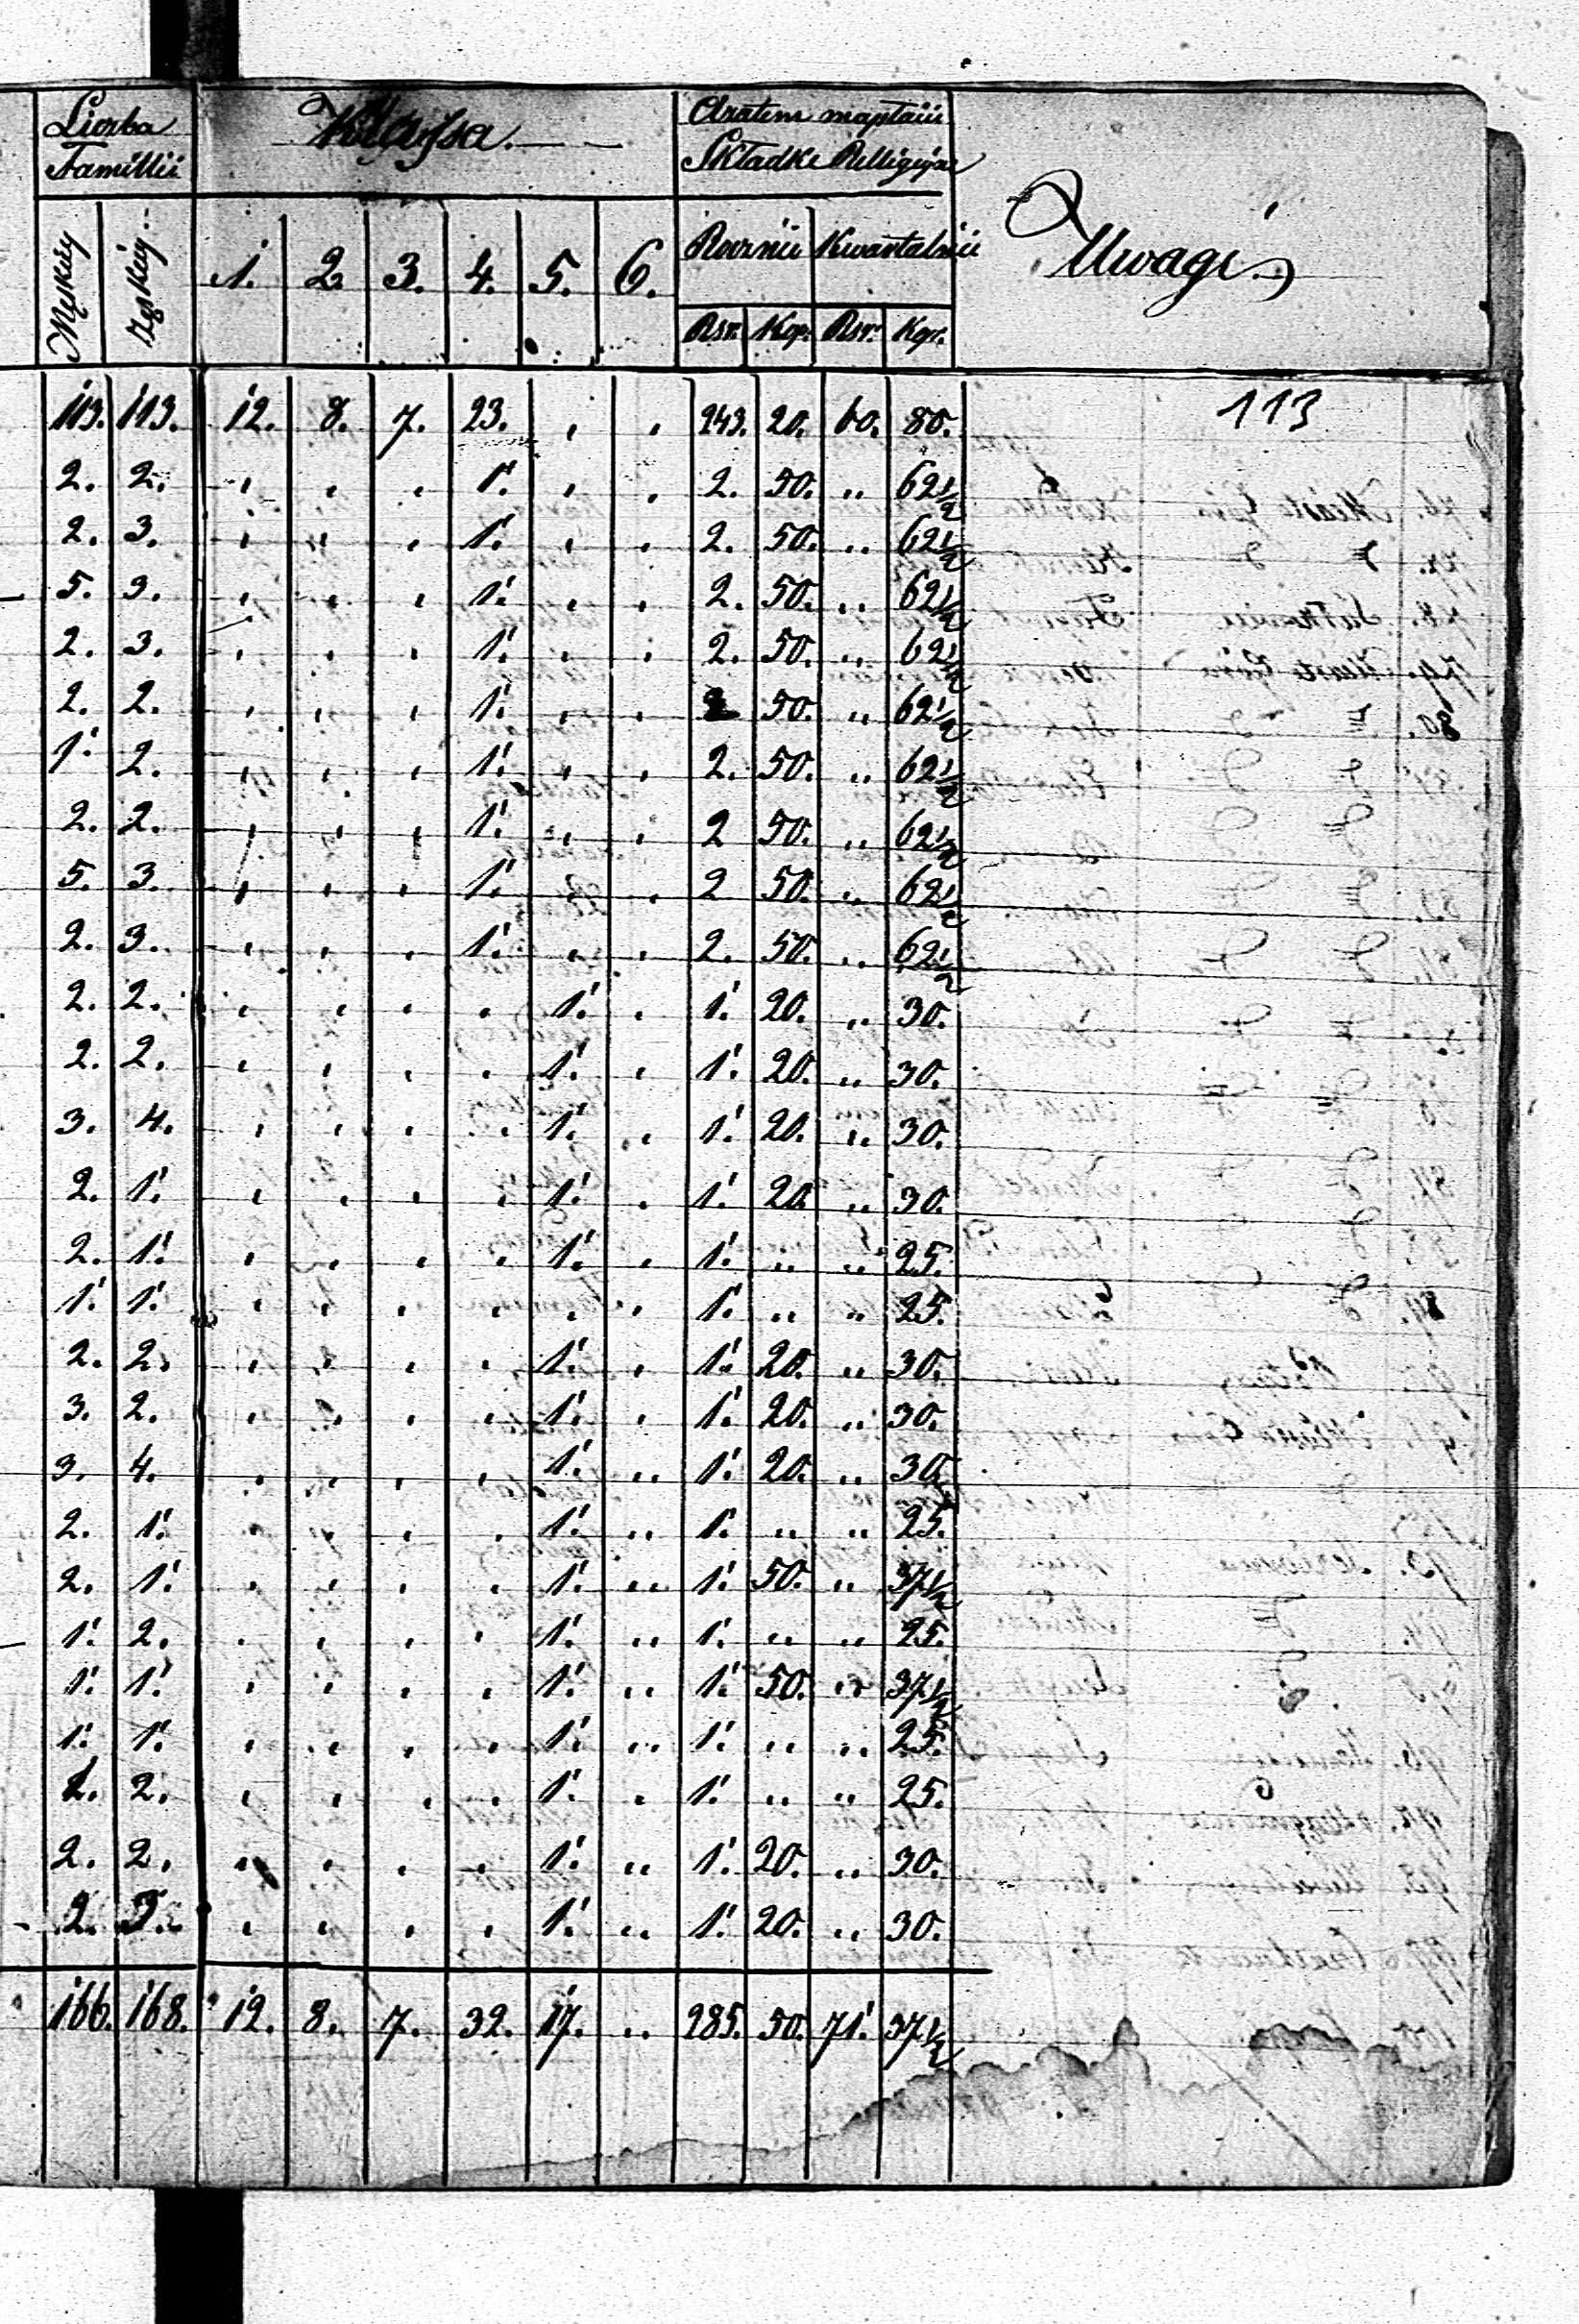 Liczba Klassa. Aratem maptaiii
Familii Składki Relligijne Uwagi
Męskiej Żeńskiej 1. 2. 3. 4. 5. 6. Rocznie Kwartalnie
Rsr. Kop. Rsr. Kop.
113
113. 113. 12. 8. 7. 23. , , 243. 20. 60. 80.
2. 2. , , , 1. , , 2. 50. ,, 62½
2. 3. , ,, , 1. , , 2. 50. ,, 62½
5. 3. , , , 1. , , 2. 50. ,, 62½
2. 3. , , , 1. , , 2. 50. ,, 62½
2. 2. , , , 1. , , 2 50. ,, 62½
1. 2. , , , 1. , , 2. 50. ,, 62½
2. 2. , , , 1. , , 2 50. ,, 62½
5. 3. , , , 1. , , 2 50. ,, 62½
2. 3. , , , 1. , , 2. 50. ,, 62½
2. 2. , , , , 1. , 1. 20. ,, 30.
2. 2. , , , , 1. , 1. 20. ,, 30.
3. 4. , , , , 1. , 1. 20. ,, 30.
2. 1. , , , , 1. , 1. 20. ,, 30.
2. 1. , , , , 1. , 1. ,, ,, 25.
1. 1. , , , , , , 1. ,, ,, 25.
2. 2. , , , , 1. , 1. 20. ,, 30.
3. 2. , , , , 1. , 1. 20. ,, 30.
3. 4. , , , , 1. ,, 1. 20. ,, 30.
2. 1. , , , , 1. ,, 1. ,, ,, 25.
2. 1. , , , , 1. ,, 1. 50. ,, 37½
1. 2. , , , , 1. ,, 1. ,, ,, 25.
1. 1. , , , , 1. ,, 1. 50. ,, 37½
1. 1. , ,, , , 1. ,, 1. ,, ,, 25.
2. , , , , 1. , 1. ,, ,, 25.
2. 2. , , , , 1. ,, 1. 20. ,, 30.
2. 3. , , , , 1. ,, 1. 20. ,, 30.
166. 168. 12. 8. 7. 32. 17. ,, 285. 50. 71. 37½